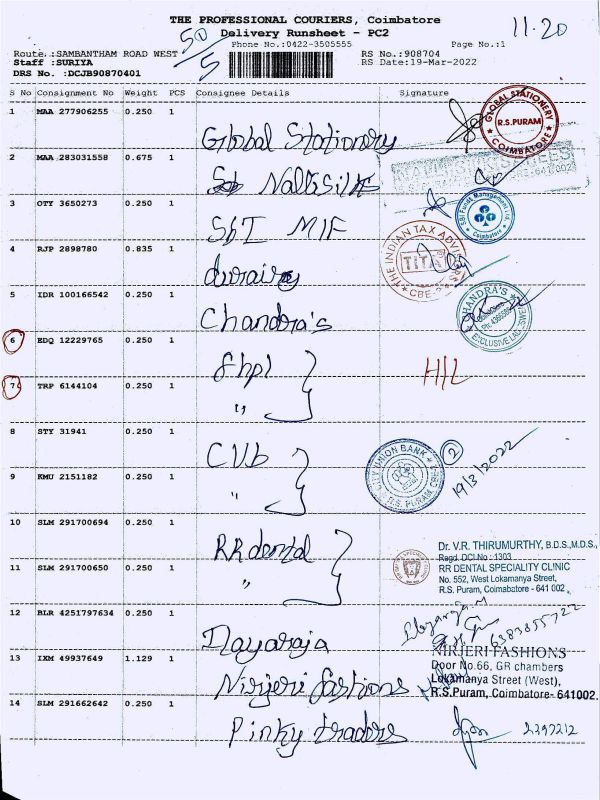 THE PROFESSIONAL COURIERS, Coimbatore
Delivery Runsheet - PC2
11.20
50/5
Phone No.:0422-3505555 Page No.:1
Route :SAMBANTHAM ROAD WEST RS No.:908704
Staff :SURIYA RS Date:19-Mar-2022
DRS No. :DCJB90870401
S No Consignment No Weight PCS Consignee Details Signature
1 MAA 277906255 0.250 1 Global Stationery
GLOBAL STATIONERY R.S.PURAM COIMBATORE
2 MAA 283031558 0.675 1 Nalli Silks
3 OTY 3650273 0.250 1 SbI MF
SBI Funds Management Ltd. Coimbatore
4 RJP 2898780 0.835 1 durairaj
THE INDIAN TAX ADVISER TITA CBE-2
5 IDR 100166542 0.250 1 Chandra's
CHANDRA'S EXCLUSIVE
6 EDQ 12229765 0.250 1 fhpl H/L
7 TRP 6144104 0.250 1 "
8 STY 31941 0.250 1 CVb
CITY UNION BANK R.S. PURAM CBE-2
2
19/3/2022
9 KMU 2151182 0.250 1 "
10 SLM 291700694 0.250 1 RR dental
11 SLM 291700650 0.250 1 "
Dr. V.R. THIRUMURTHY, B.D.S.,M.D.S.,
Regd. DCI.No : 1303
RR DENTAL SPECIALITY CLINIC
No. 552, West Lokamanya Street,
R.S. Puram, Coimabatore - 641 002.
12 BLR 4251797634 0.250 1 Dayaraja
6383855722
13 IXM 49937649 1.129 1 Nirjeri fastions
NIRJERI FASHIONS
Door No.66, GR chambers
Lokamanya Street (West),
R.S.Puram, Coimbatore- 641002.
14 SLM 291662642 0.250 1 Pinky traders